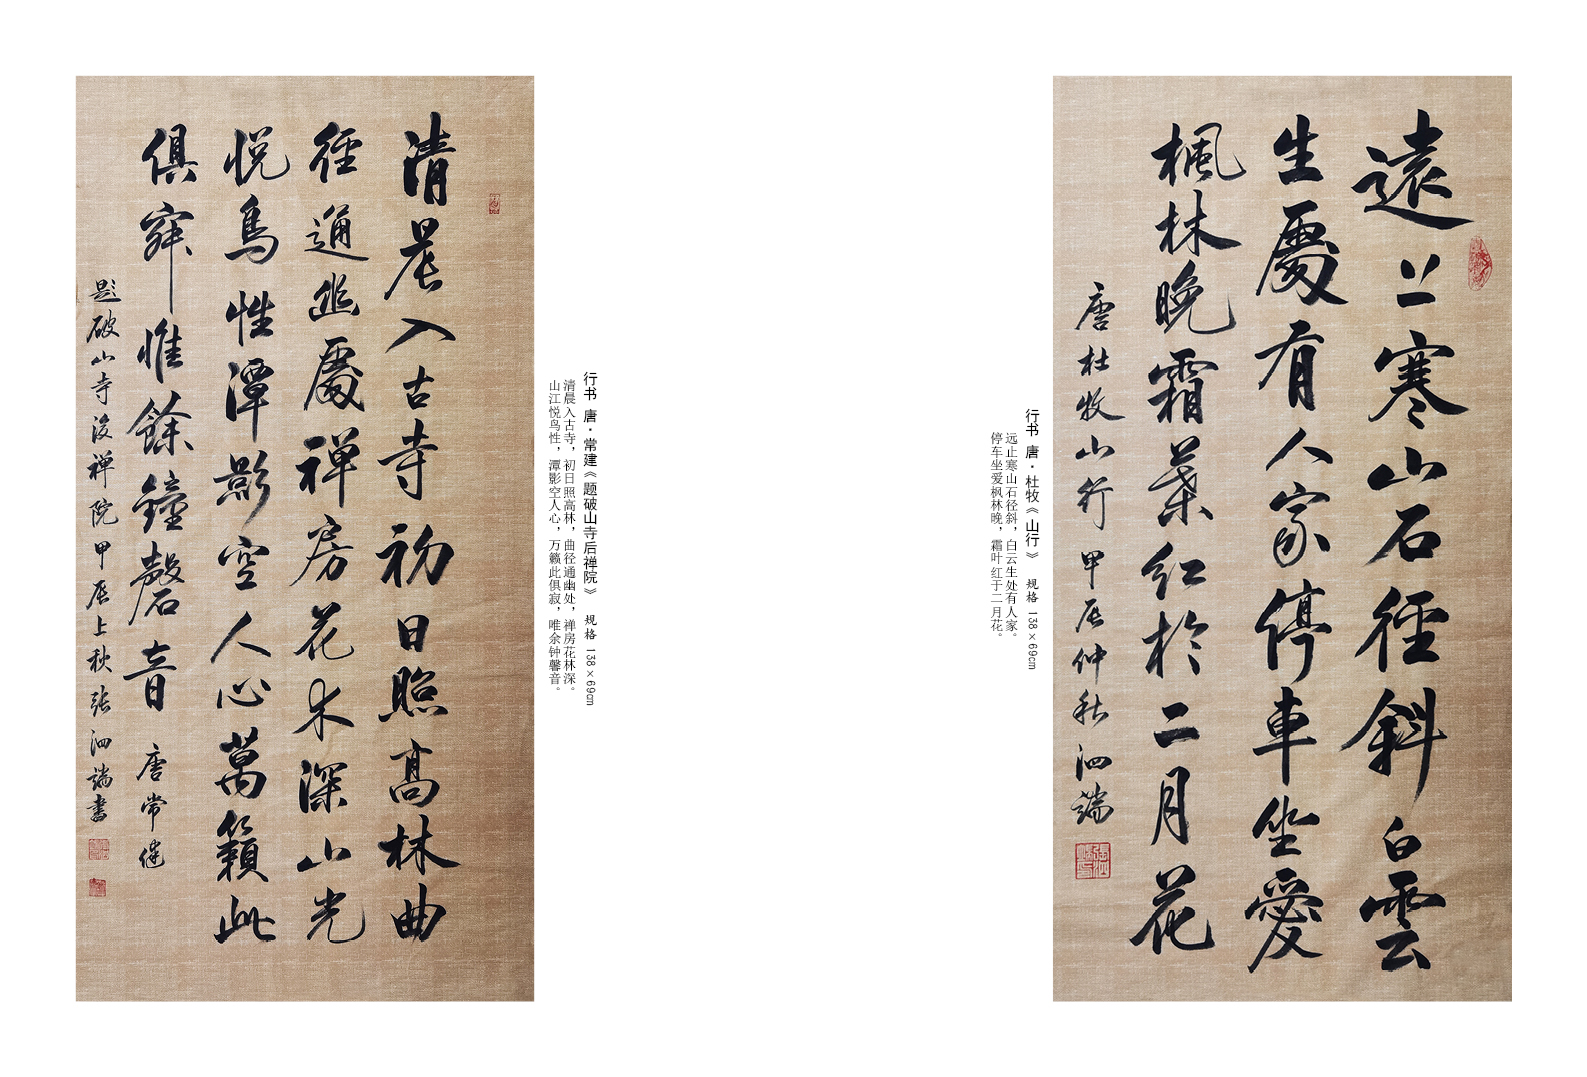 清晨入古寺初日照高林曲
徑通幽處禅房花木深山光
悦鳥性潭影空人心萬籟此
俱寂惟餘鐘磬音 唐常建
題破山寺後禅院甲辰上秋张泗端書
行书 唐·常建《题破山寺后禅院》 规格 138×69cm
清晨入古寺，初日照高林，曲径通幽处，禅房花林深。
山江悦鸟性，潭影空人心，万籁此俱寂，唯余钟馨音。
遠上寒山石徑斜白雲
生處有人家停車坐愛
楓林晚霜葉紅於二月花
唐杜牧山行甲辰仲秋泗端
行书 唐·杜牧《山行》 规格 138×69cm
远止寒山石径斜，白云生处有人家。
停车坐爱枫林晚，霜叶红于二月花。